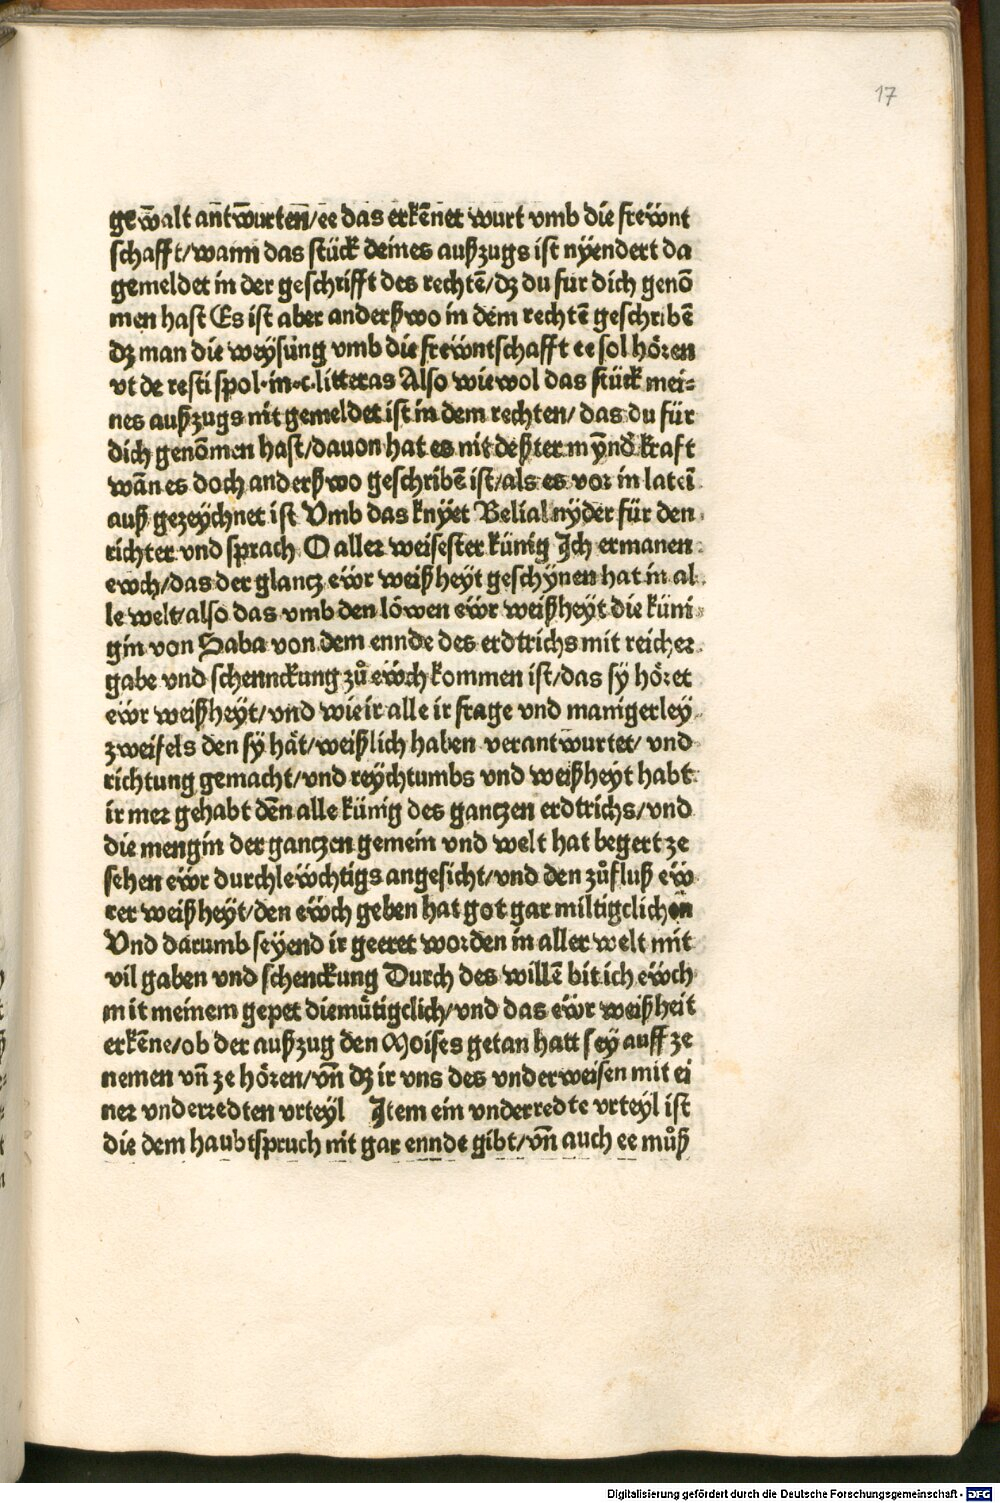 17
gew̄alt an̄tw̄urten̄/ee das erkēnet wurt vmb die freẅnt
schafft/wann das stück deines außzugs ist nÿendert da
gemeldet in der geschrifft des rechtē/dz du fur dich genō
men hast Es ist aber anderßwo in dem rechtē geschribē
dz man die weÿsung vmb die freẅntschafft ee sol hören
vt de resti spol·in·c·litteras Also wiewol das stück mei-
nes außzugs nit gemeldet ist in dem rechten/ das du für
dich genōmen hast/dauon hat es nit deßter mȳnd̄ kraft
wān es doch anderßwo geschribē ist/als es vor in lateī
auß gezeÿchnet ist Vmb das knÿet Belial nÿder für den
richter vnd sprach O aller weisester künig Ich ermanen
ewch/das der glantz eẅr weißheÿt geschÿnen hat in al
le welt/also das vmb den löwen eẅr weißheÿt die küni
gin von Saba von dem ennde des erdtrichs mit reicher
gabe vnd schennckung zů eẅch kommen ist/das sÿ höret
eẅr weißheÿt/vnd wie ir alle ir frage vnd manigerleÿ
zweifels den sÿ hät/weißlich haben verantwurtet/ vnd
richtung gemacht/vnd reÿchtumbs vnd weißheÿt habt
ir mer gehabt dēn alle künig des gantzen erdtrichs/vnd
die mengin der gantzen gemein vnd welt hat begert ze
sehen eẅr durchleẅchtigs angesicht/vnd den zůfluß eẅ
rer weißheÿt/den eẅch geben hat got gar miltigclichen
Vnd darumb seÿend ir geeret worden in aller welt mit
vil gaben vnd schenckung Durch des willē bit ich eẅch
mit meinem gepet diemütigclich/vnd das eẅr weißheit
erkēne/ob der außzug den Moises getan hatt seÿ auff ze
nemen vn̄ ze hören/vn̄ dz ir vns des vnderweisen mit ei
ner vnderredten vrteÿl Item ein vnderredte vrteÿl ist
die dem haubtspruch nit gar ennde gibt/vn̄ auch ee můß
Digitalisierung gefördert durch die Deutsche Forschungsgemeinschaft - DFG